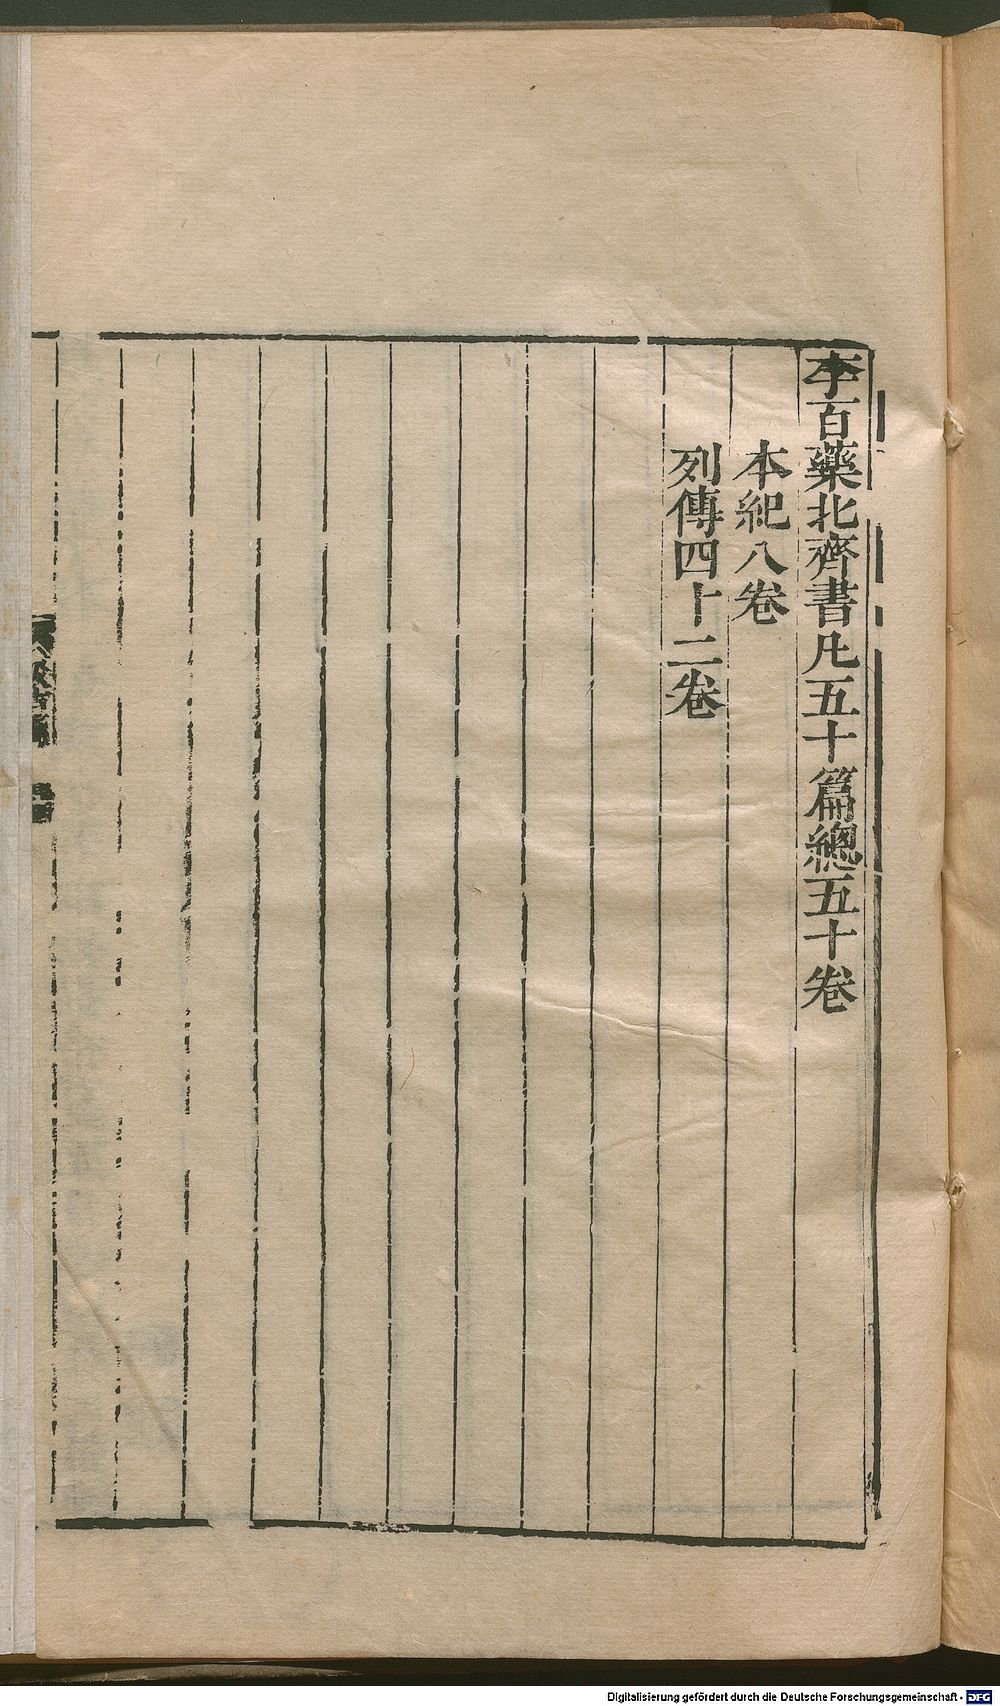 李百藥北齊書凡五十篇總五十卷
本紀八卷
列傳四十二卷
Digitalisierung gefördert durch die Deutsche Forschungsgemeinschaft - DFG